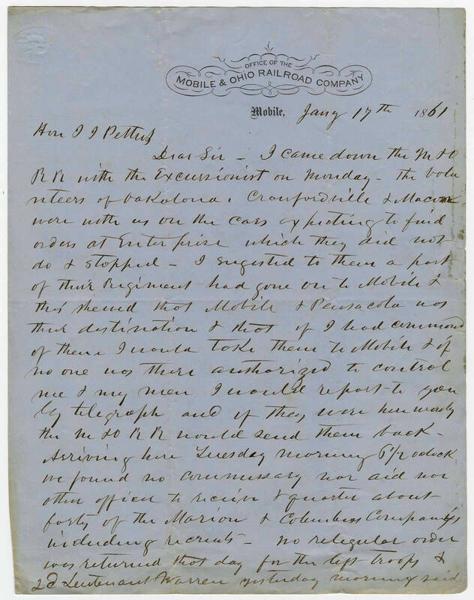 OFFICE OF THE
MOBILE & OHIO RAILROAD COMPANY
Mobile, Jany 17th 1861
Hon J J Pettus
Dear Sir - I came down the M & O
R R with the Excursionist on Monday - the volun
teers of Okalona, Crawfordville & Macon
were with us on the cars expecting to find
orders at Enterprise which they did not
do & stopped - I sugested to them a part
of their Regiment had gone on to Mobile &
this shewed that Mobile & Pensacola was
their destination & that if I had command
of them I would take them to Mobile & if
no one was there authorized to control
me & my men I would report to you
by telegraph and if they were here
the M & O R R would send them back -
Arriving here Tuesday morning 6 oclock
we found no commissary nor aid nor
other officer to receive & quarter about
forty of the Marion & Columbus Company's
including recruits - no reliegular order
was returned that day for the left troops &
2d Lieutenant Warren yesterday morning said